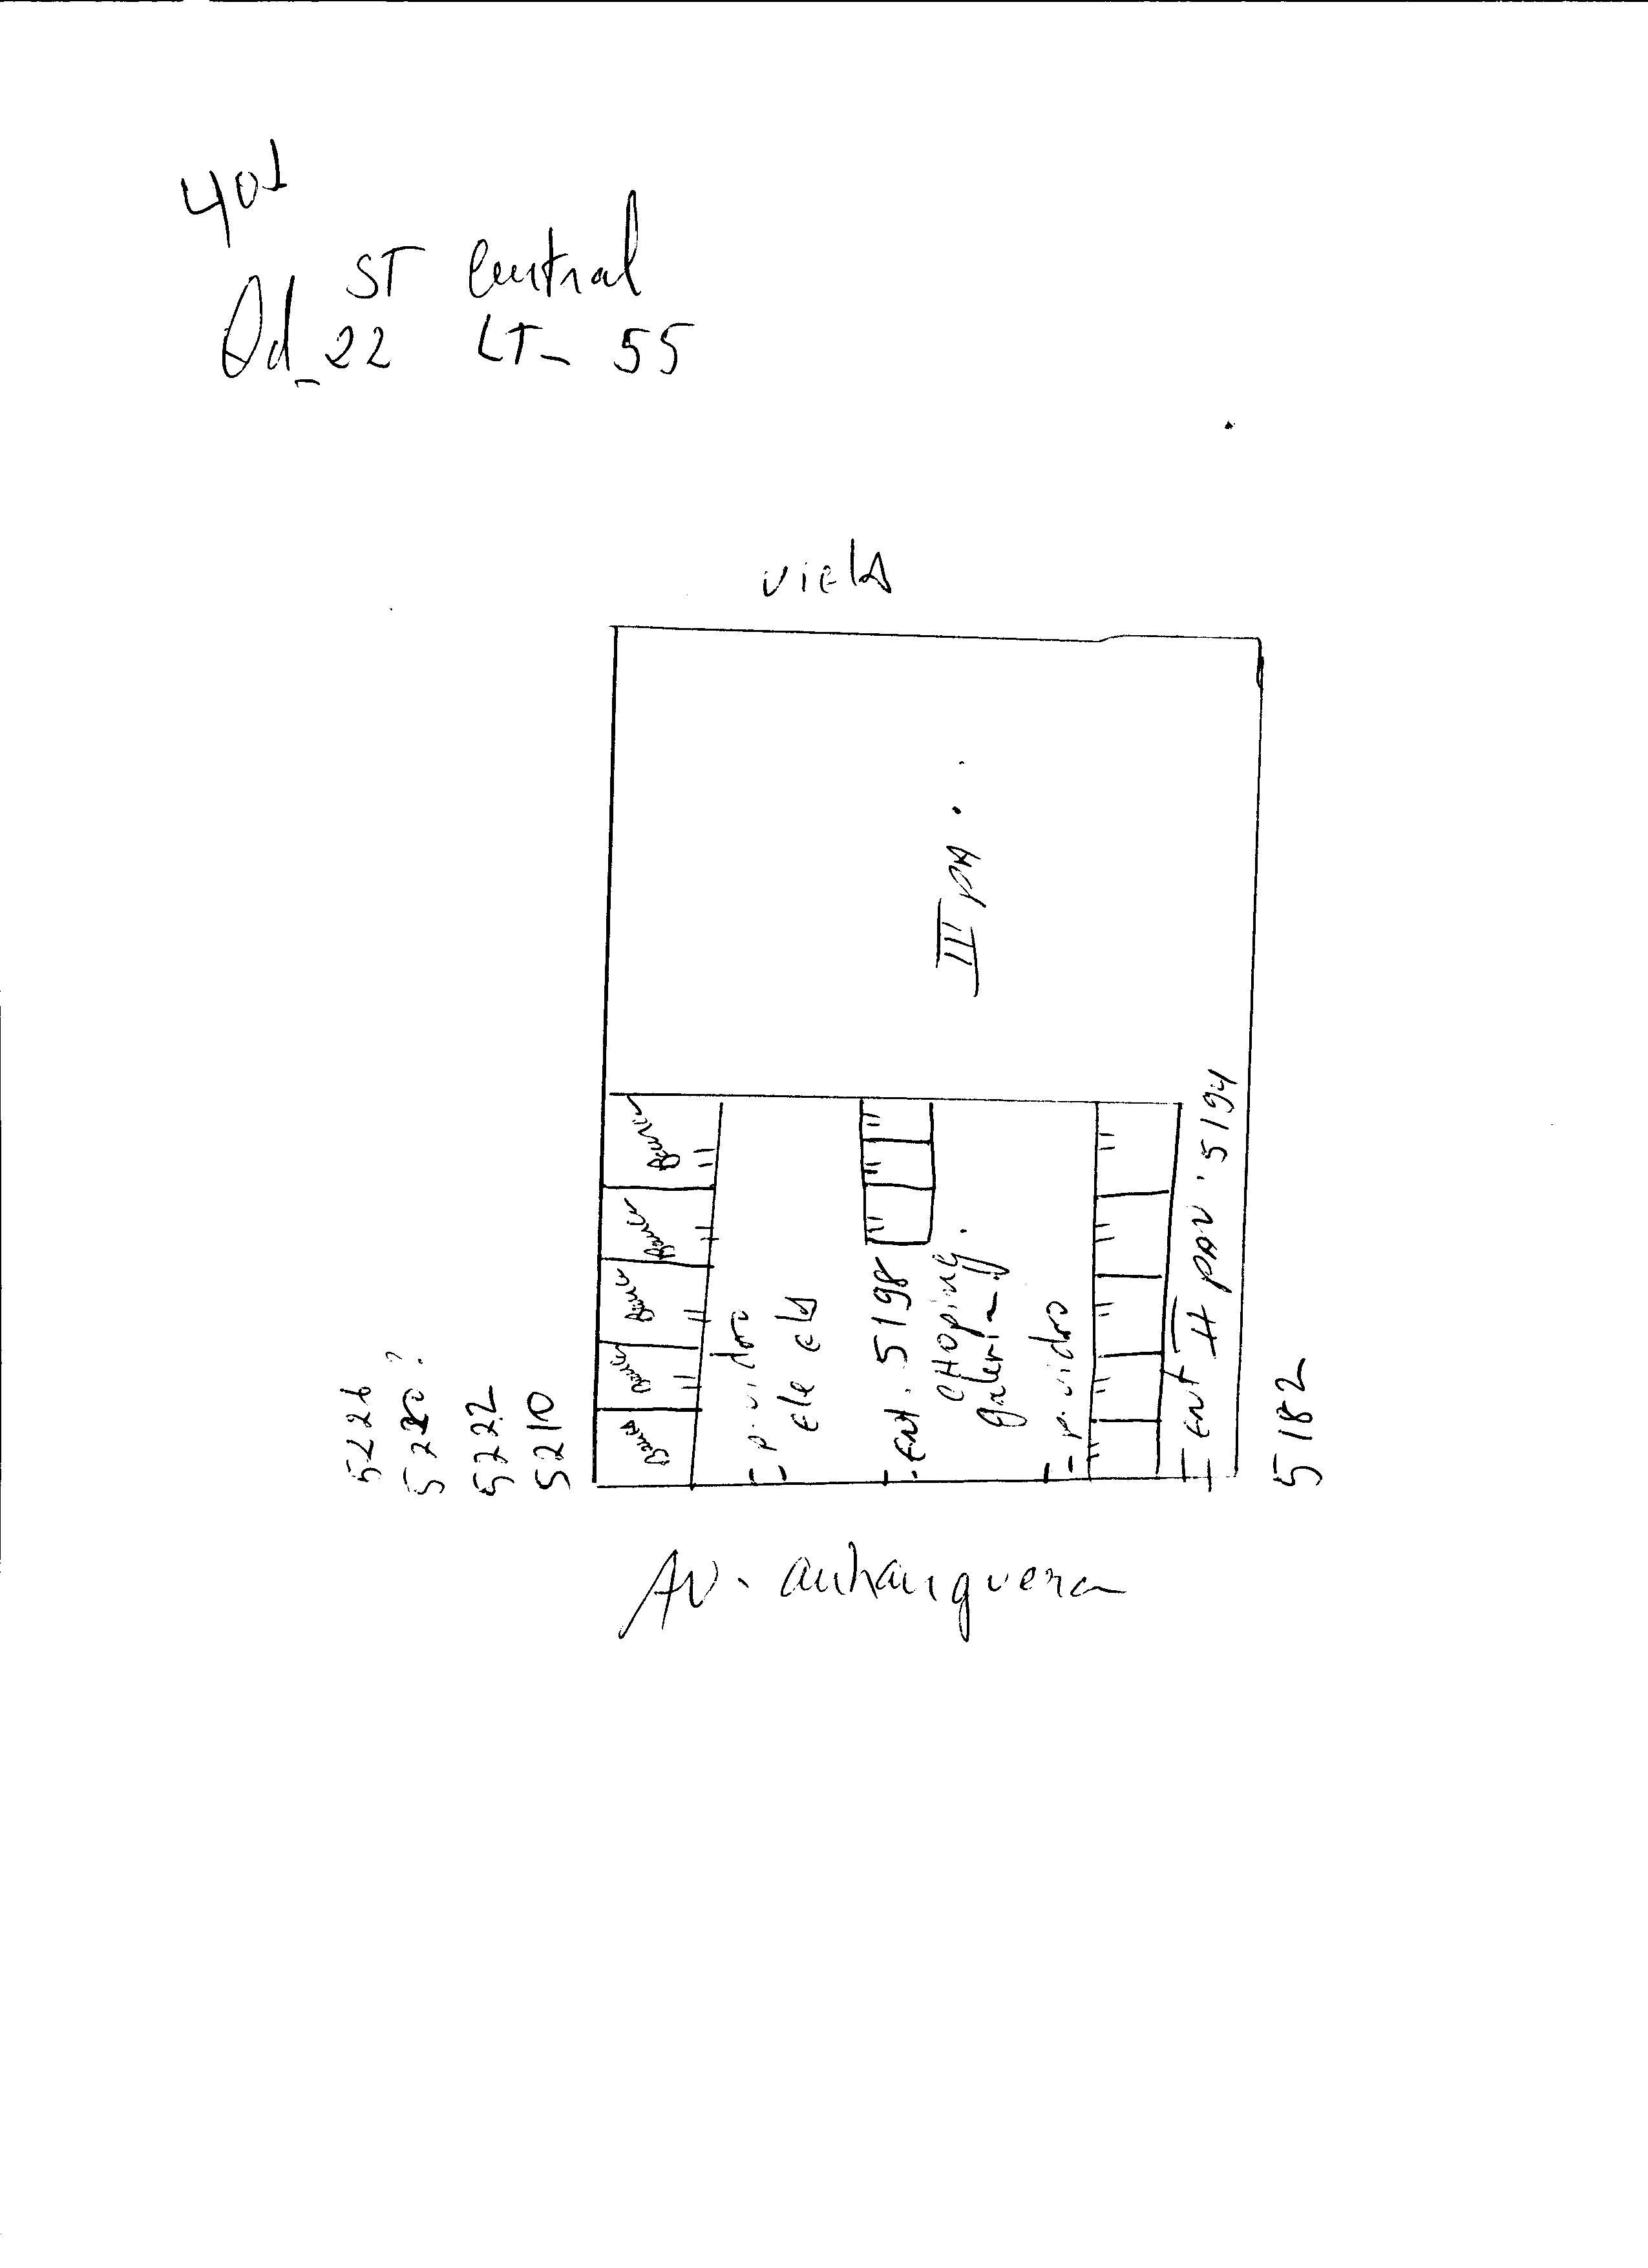 401
ST Central
Qd_22 LT_ 55
viela
II PA.
5226
522
5222
5210
Banca
Banca
Banca
Banca
Banca
p. vidro
ELE ELA
ENt. 5198
CHOPING
galeria
p. vidro
ENt II PAV. 5194
5182
AV. anhanguera